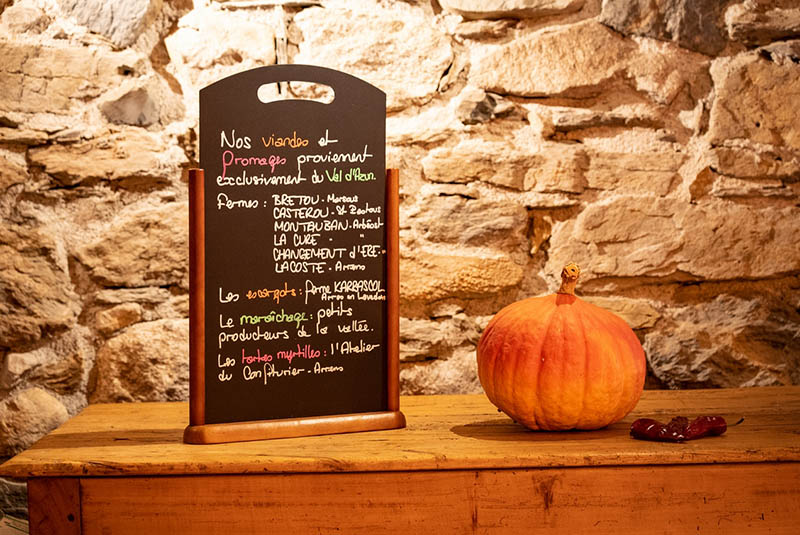 Nos viandes et
fromages proviennent
exclusivement du Val d'Azun.
Fermes : BRETOU - Marsous
CASTEROU - St
MONTAUBAN - Arbéost
LA CURE "
CHANGEMENT d'ERE - "
LACOSTE - Arrens
Les escargots : ferme KARRASCOL
Arras en Lavedan
Le maraîchage : petits
producteurs de la vallée.
Les tartes myrtilles : l'Atelier
du Confiturier - Arrens